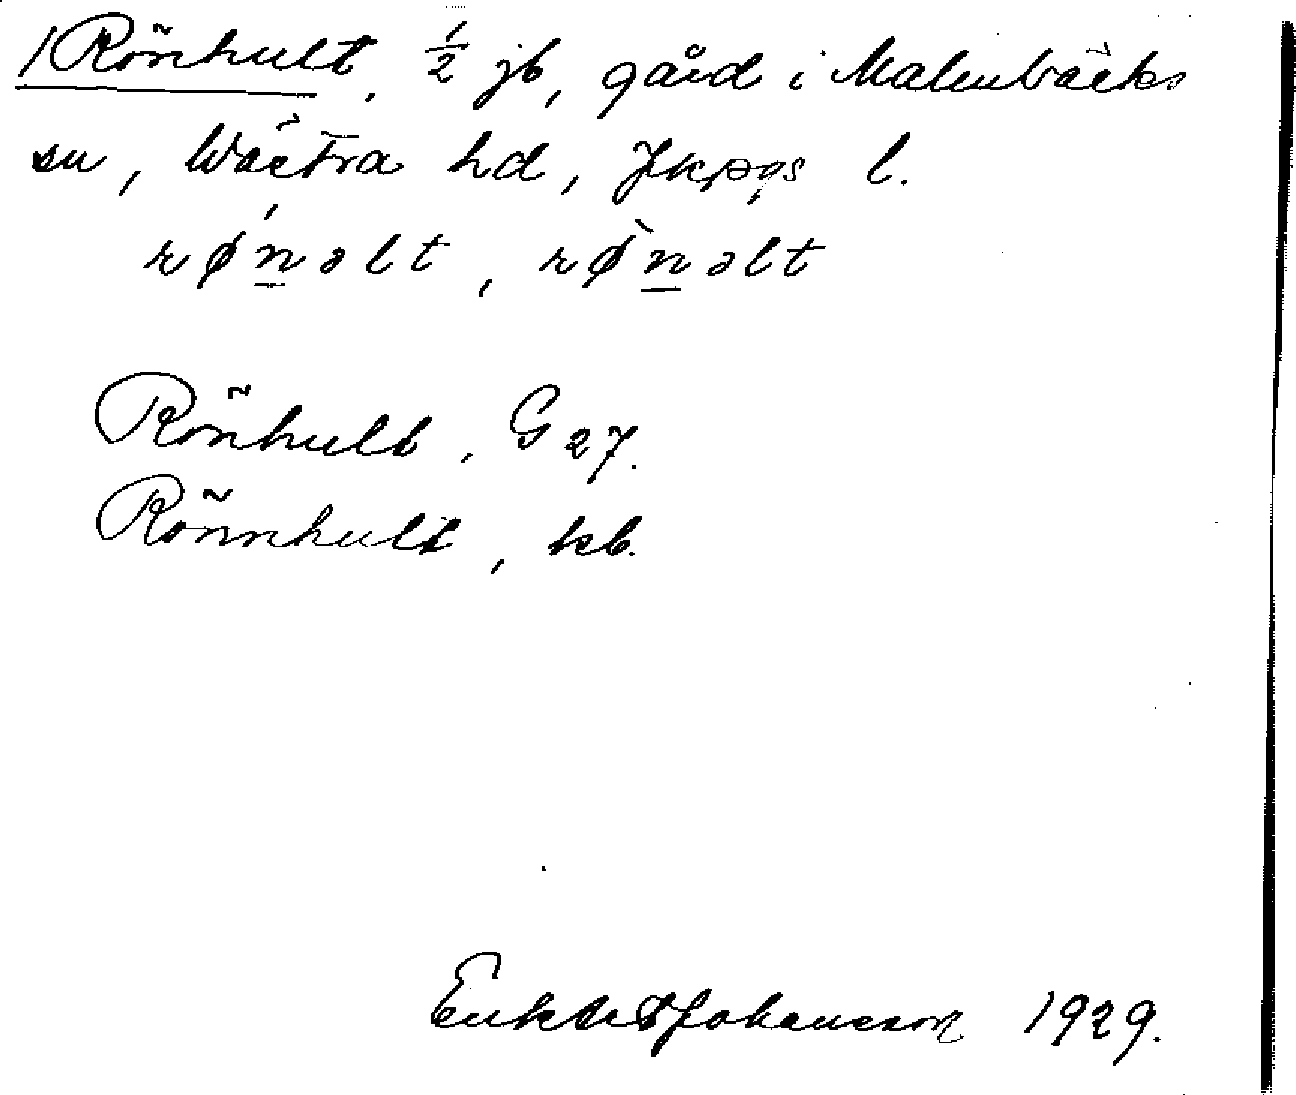 /Rönhult, ½ jb, gård i Malmbäcks
sn, Wästra hd, Jkpgs l.
rǿn̲əlt, rø̀n̲əlt
Rönhult, G 27.
Rönnhult, kb.
Johansson 1929.